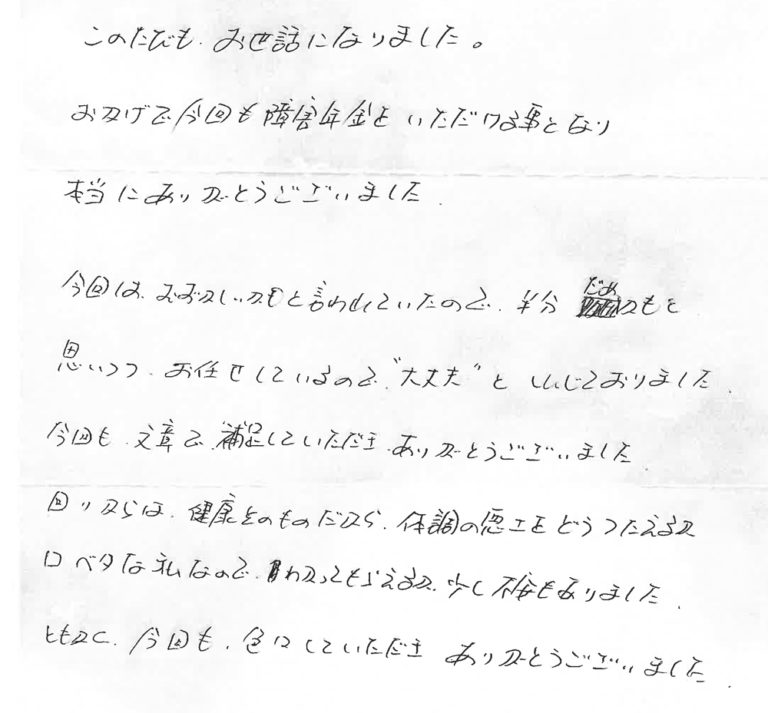 このたびも、お世話になりました。
おかげで今回も障害年金をいただける事となり
本当にありがとうございました.
今回は、むずかしいかもと言われていたので、半分 だめかもと
思いつつ、お任せしているので、"大丈夫"としんじておりました.
今回も、文章で、補足していただき、ありがとうございました
回りからは、健康そのものだから、体調の悪さをどうつたえるか
口ベタな私なので、わかってもらえるか、少し不安もありました.
ともかく、今回も、色々していただき ありがとうございました.